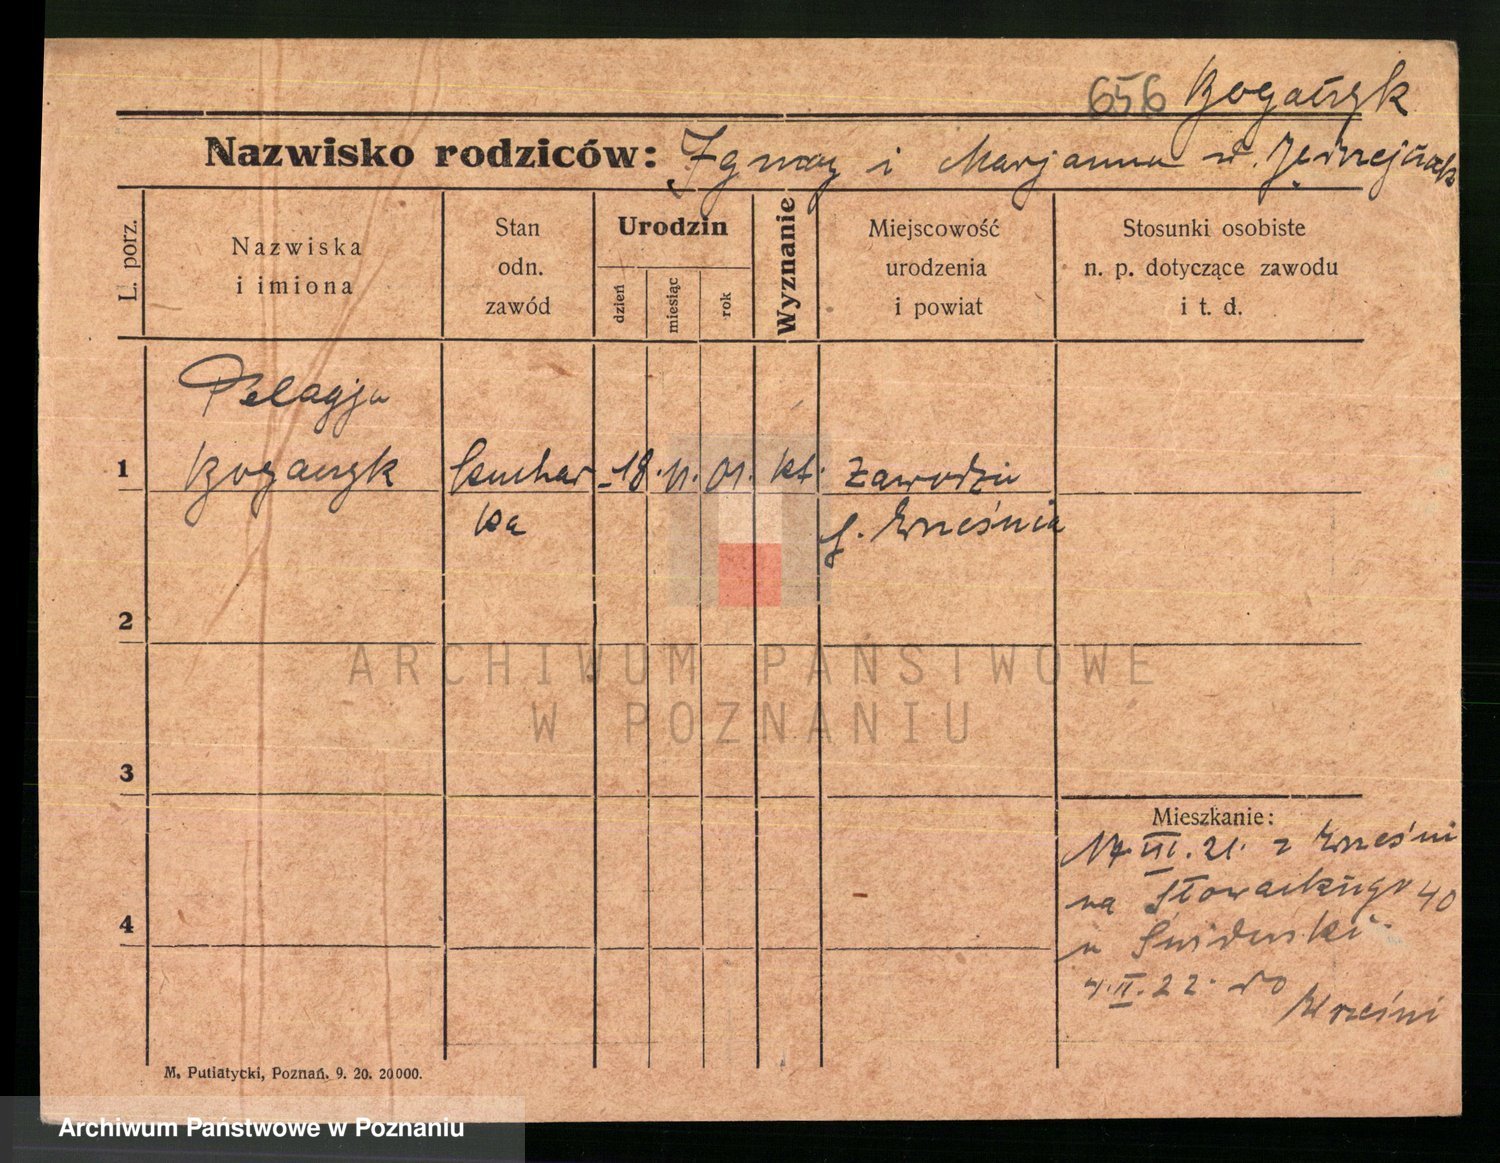 656 Bogačzyk
Nazwisko rodziców: Ignacy i Marjanna d. Jędrzejczak
L. porz.
Nazwiska
i imiona
Stan
odn.
zawód
Urodzin
dzień
miesiąc
rok
Wyznanie
Miejscowość
urodzenia
i powiat
Stosunki osobiste
n. p. dotyczące zawodu
i t. d.
Pelagja
1 Bogaczyk Kuchar 18. 11. 01. kt. Zawodzie
ka p. Września
2
3
4
Mieszkanie:
17.III.21. z Wrześni
na Słowackiego 40
u
4.II.22. do
Wrześni
M. Putiatycki, Poznań. 9. 20. 20000.
ARCHIWUM PAŃSTWOWE
W POZNANIU
Archiwum Państwowe w Poznaniu